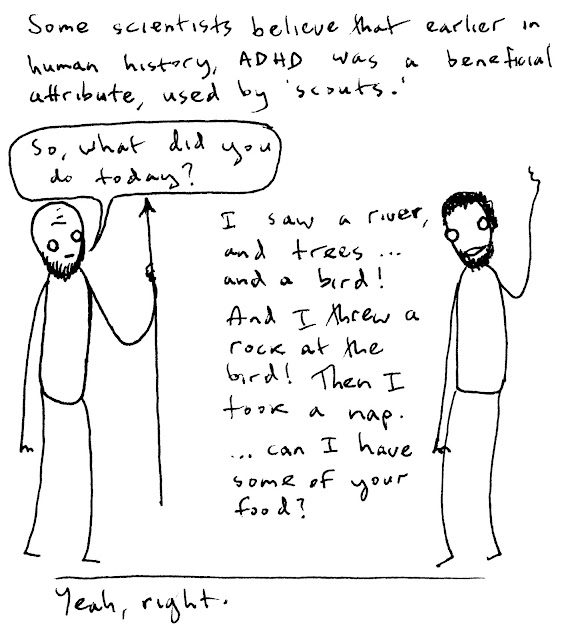 Some scientists believe that earlier in
human history, ADHD was a beneficial
attribute, used by 'scouts.'
So, what did you
do today?
I saw a river,
and trees ...
and a bird!
And I threw a
rock at the
bird! Then I
took a nap.
... can I have
some of your
food?
Yeah, right.